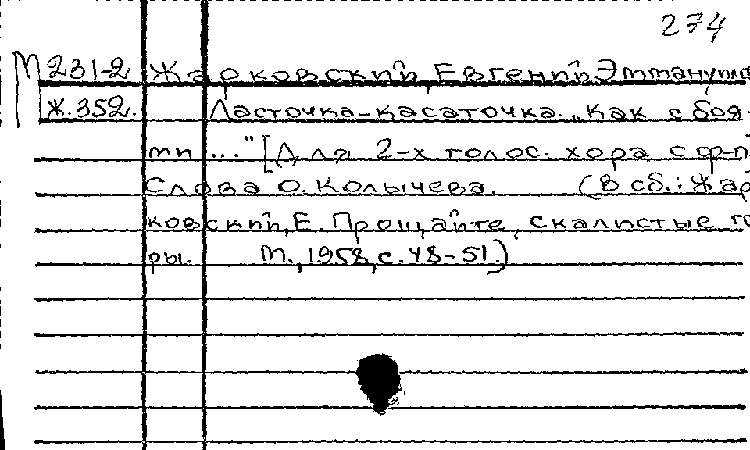 274
М 231-2 Жарковский, Евгений Эммануило
Ж.352. Ласточка-касаточка. „Как с боя-
ми ..." [Для 2-х голос. хора с ф-п
Слова О. Колычева. (В сб.: Жар
ковский, Е. Прощайте, скалистые го
ры. М., 1958, с. 48-51.)